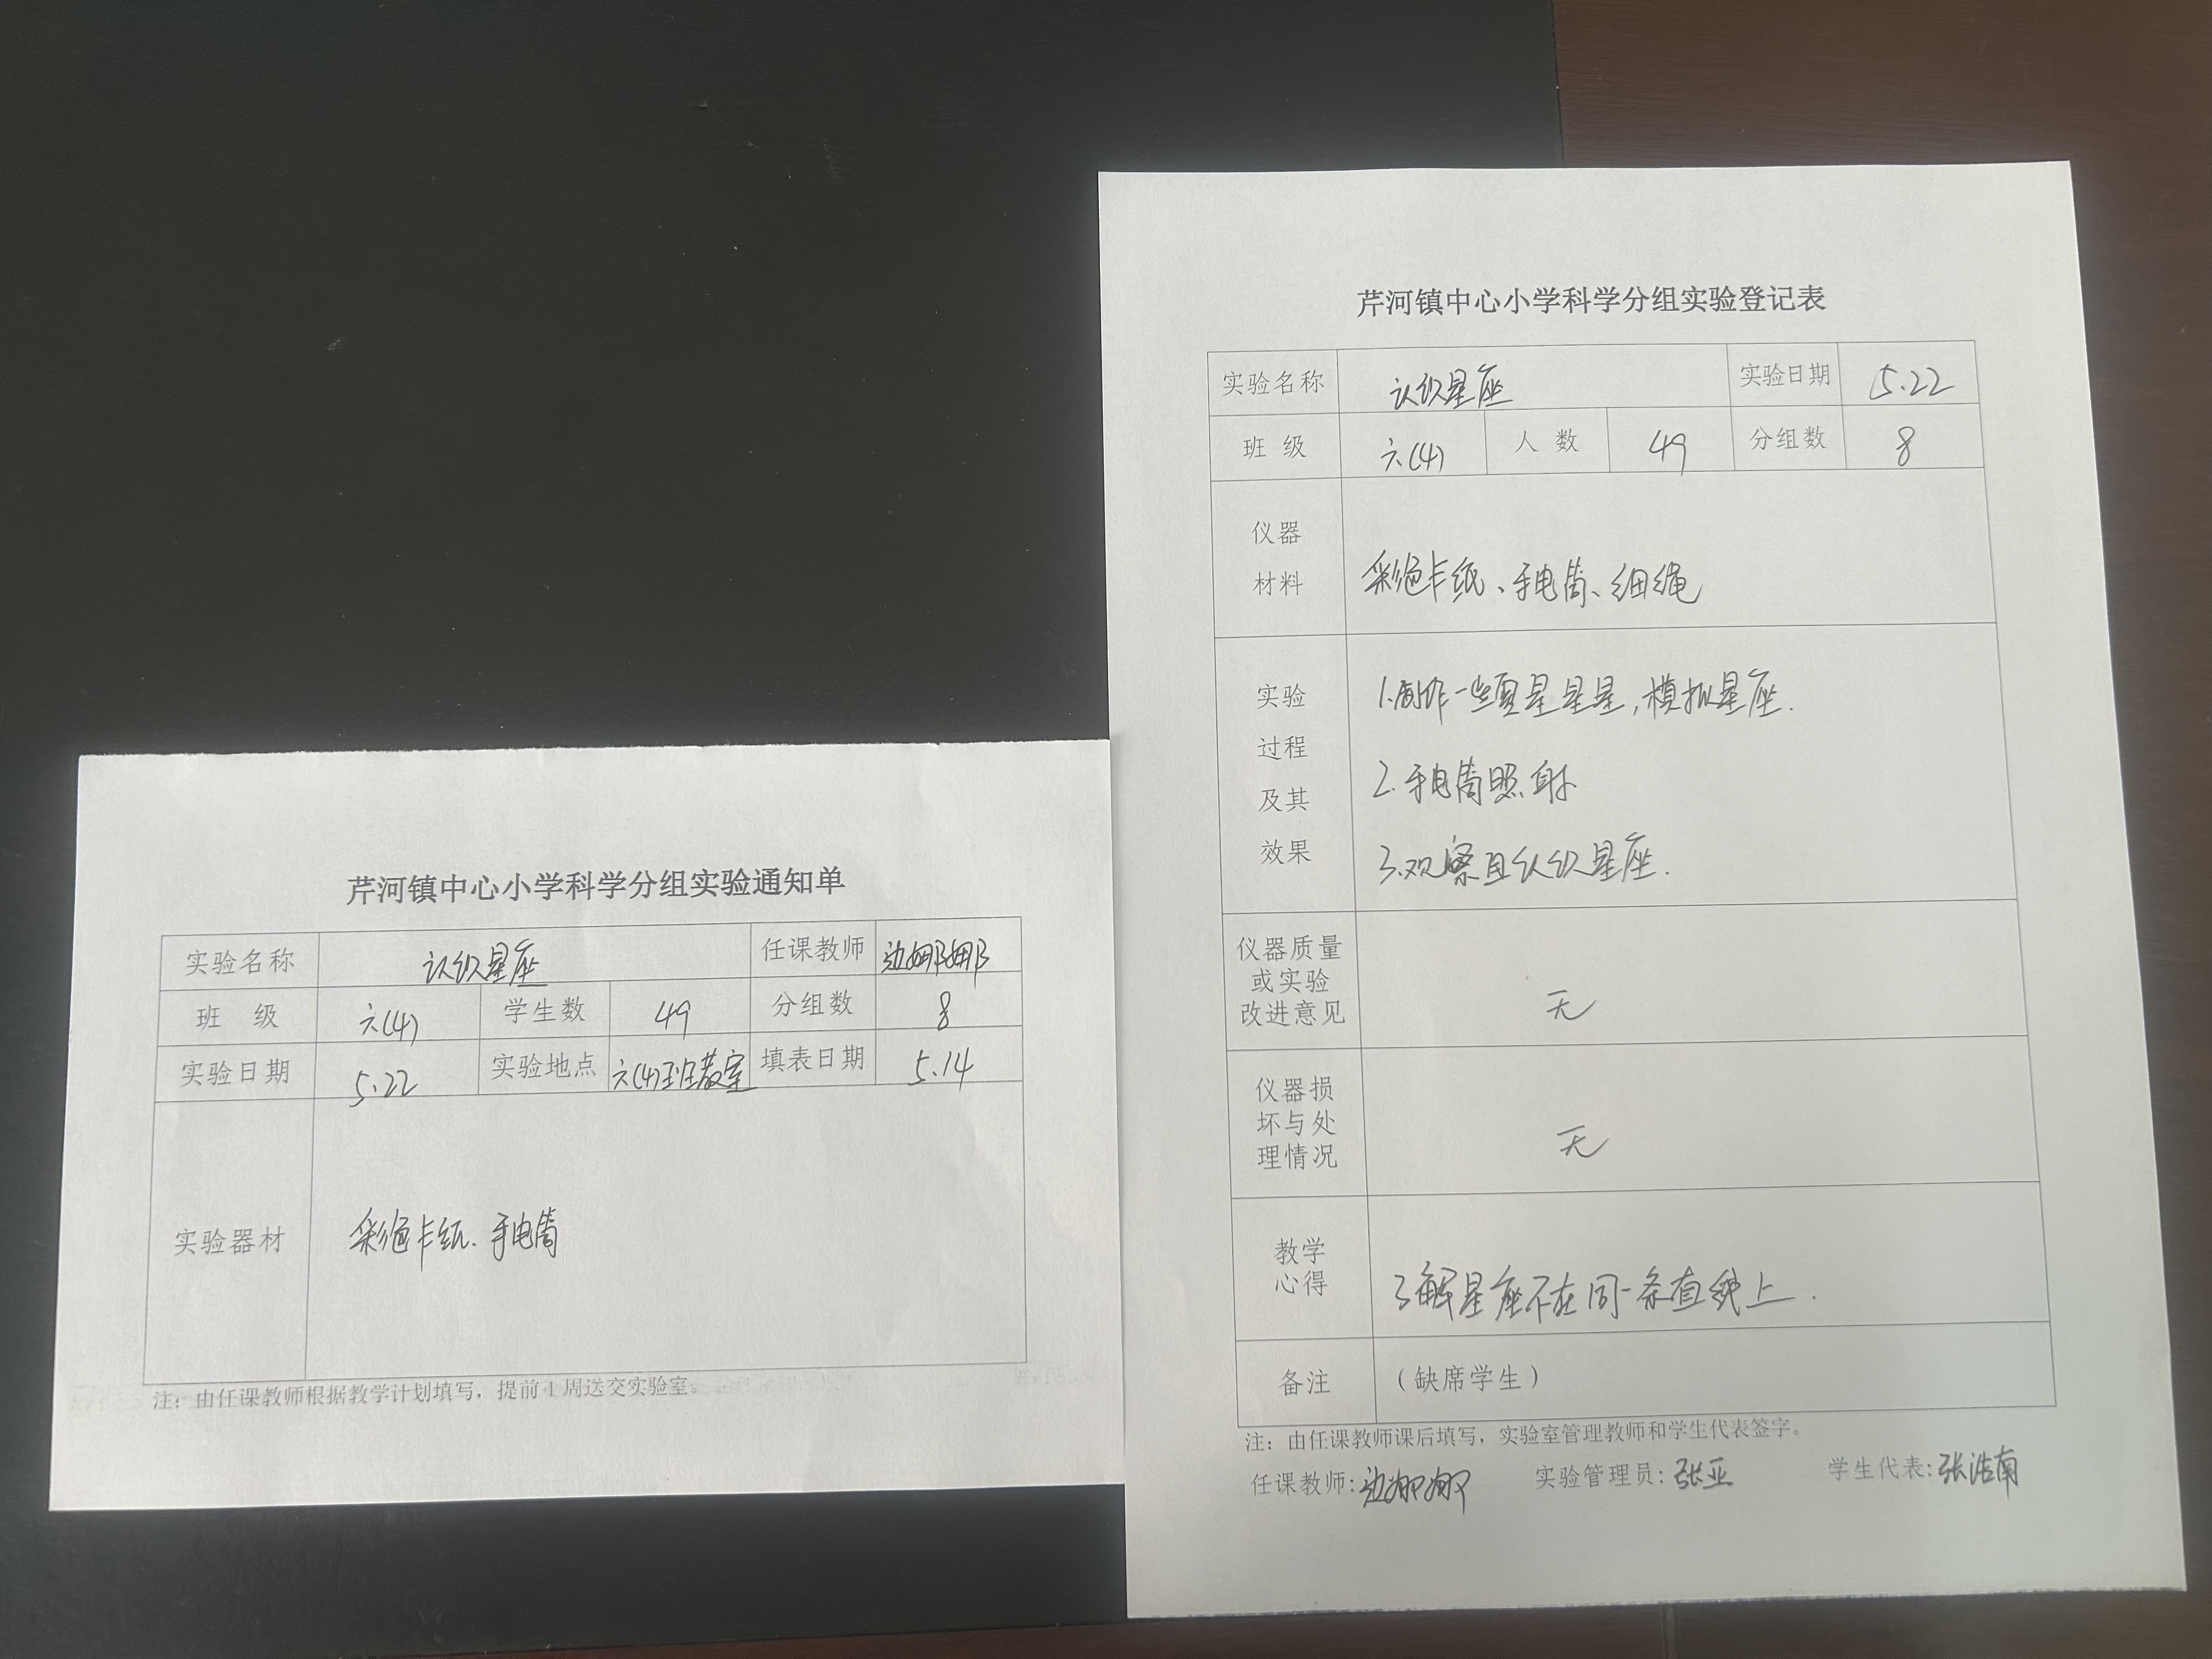 芹河镇中心小学科学分组实验通知单
实验名称 认识星座 任课教师 边娜娜
班 级 六(4) 学生数 49 分组数 8
实验日期 5.22 实验地点 六(4)班教室 填表日期 5.14
实验器材 彩色卡纸、手电筒
注：由任课教师根据教学计划填写，提前1周送交实验室。
芹河镇中心小学科学分组实验登记表
实验名称 认识星座 实验日期 5.22
班 级 六(4) 人 数 49 分组数 8
仪器
材料
彩色卡纸、手电筒、细绳
实验
过程
及其
效果
1.制作一些星星,模拟星座.
2.手电筒照射
3.观察且认识星座.
仪器质量
或实验
改进意见
无
仪器损
坏与处
理情况
无
教学
心得
了解星座不在同一条直线上.
备注 （缺席学生）
注：由任课教师课后填写，实验室管理教师和学生代表签字。
任课教师:边娜娜 实验管理员:张亚 学生代表:张浩南